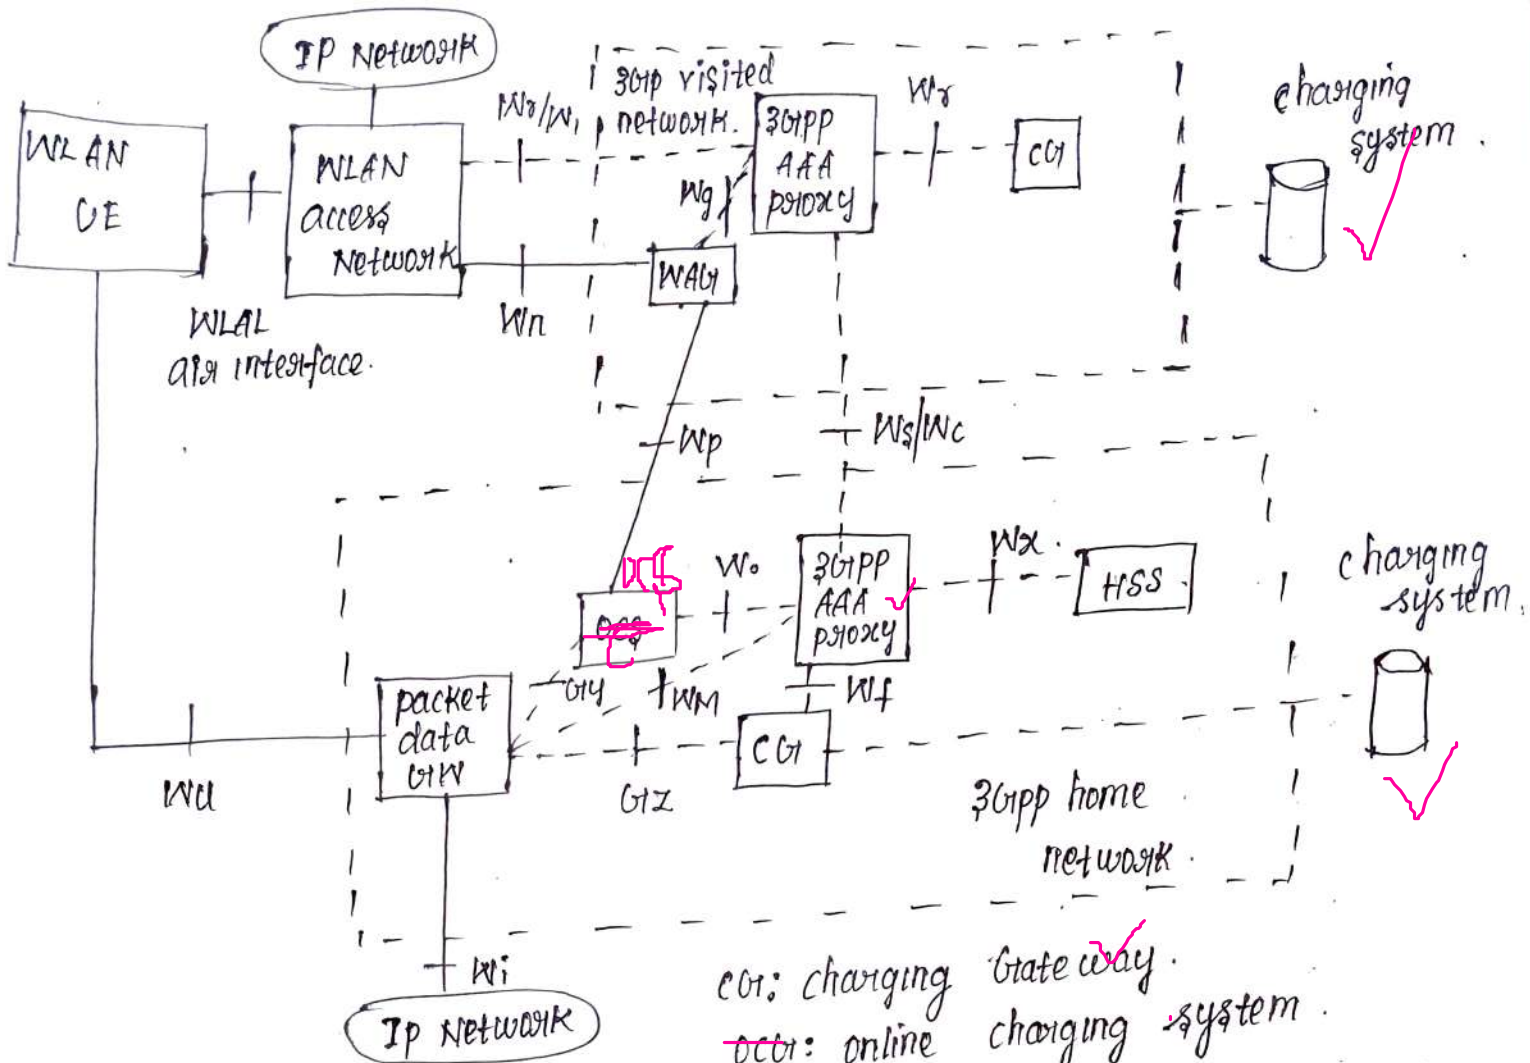 IP Network
WLAN
UE
WLAN
access
Network
Wr/W,
3Gp visited
network.
3GPP
AAA
proxy
Wr
CG
charging
system.
Wg
WAG
Wn
WLAL
air interface.
Wp
Ws/Wc
OCS
Wo
3GPP
AAA
proxy
Wx.
HSS
charging
system.
Gy
WM
Wf
packet
data
GW
CG
Wu
GZ
3Gpp home
network.
Wi
IP Network
CG: charging Gateway.
OCG: online charging system.